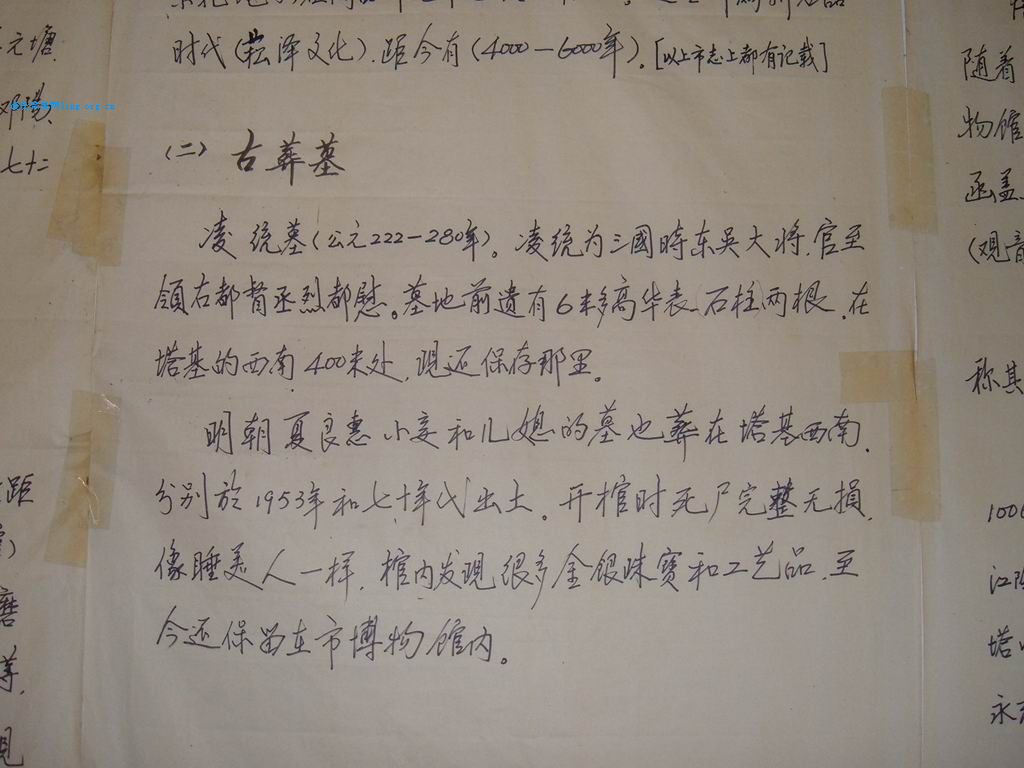 时代(菘泽文化).距今有(4000-6000年)。[以上市志上都有记载]
(二) 古葬墓
凌统墓(公元222-280年)。凌统为三國時东吴大将.官至
領右都督丞烈都慰。墓地前遗有6米多高华表石柱两根.在
塔基的西南400米处,现还保存那里。
明朝夏良惠小妾和儿媳的墓也葬在塔基西南.
分别於1953年和七十年代出土。开棺时死尸完整无損.
像睡美人一样,棺内发现很多金银珠寶和工艺品.至
今还保留在市博物館内。
元塘.
邓阳、
七十二
距
磨
等.
現
随着
物館
函盖
(观音
称其
100
江阴
塔
永